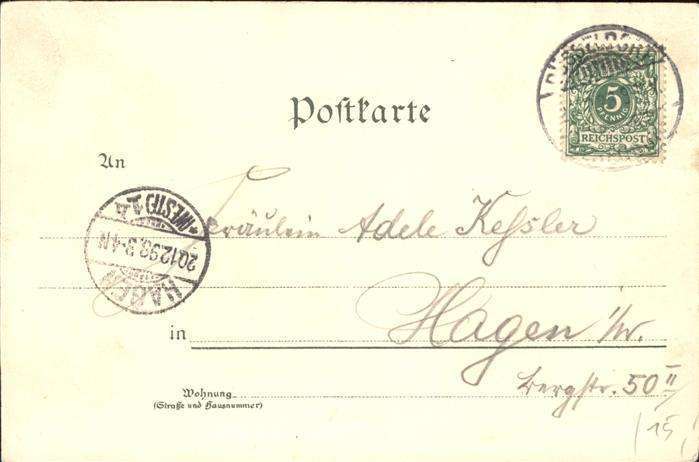 DÜSSELDORF
5
PFENNIG
REICHSPOST
Postkarte
An
HAGEN
20.12.98.3-4N
*(WESTF.)1
Fräulein Adele Kessler
in Hagen i/w.
Bergstr. 50 II
Wohnung
(Straße und Hausnummer)
15